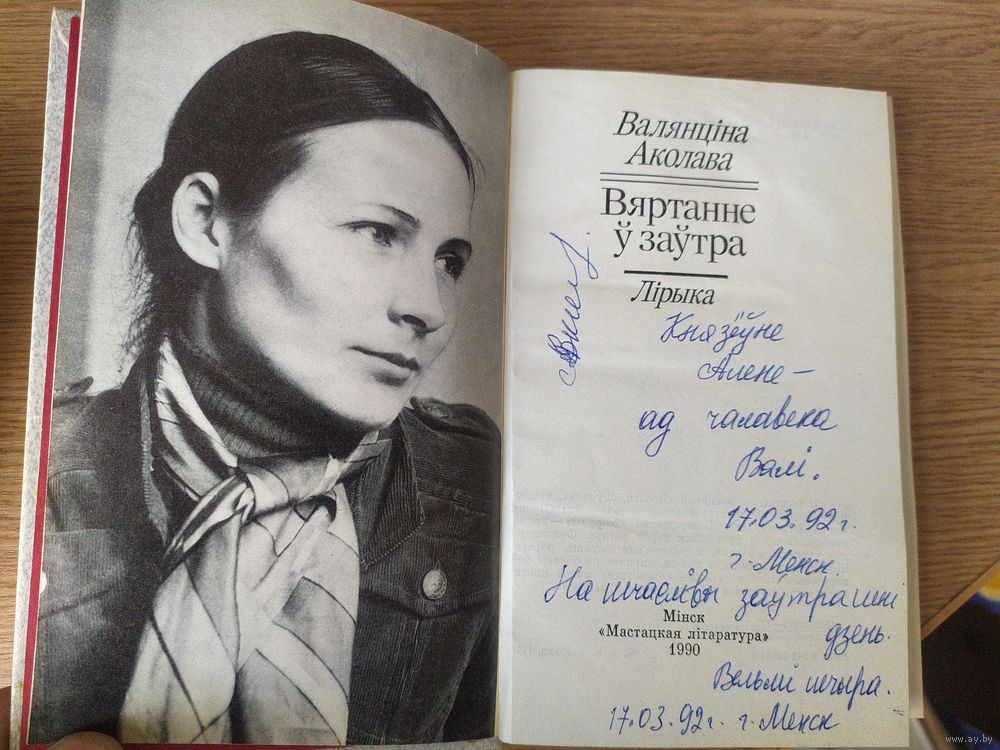 Валянціна
Аколава
Вяртанне
ў заўтра
Лірыка
Князёўне
Алене –
ад чалавека
Валі.
17.03.92 г.
г. Менск.
На шчаслівы заўтрашні
дзень.
Мінск
«Мастацкая літаратура»
1990
Вельмі шчыра.
17.03.92г. г. Менск
www.ay.by